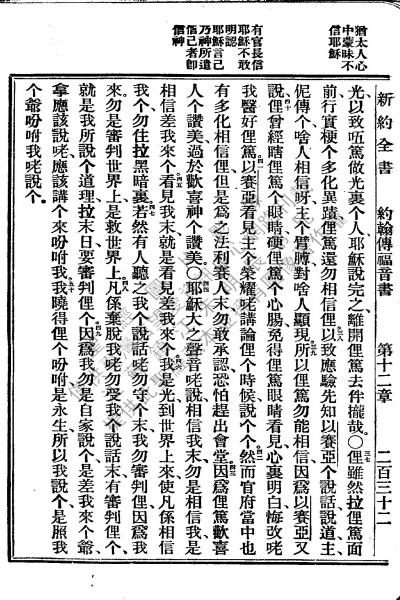 新約全書 約翰傳福音書 第十二章 二百三十二
猶太人心
中蒙昧不
信耶穌
光以致㕶篤做光裏个人、耶穌說完之離開俚篤去伴攏哉。〇三七俚雖然拉俚篤面
前行實梗个多化異蹟、俚篤還勿相信俚、三八以致應驗先知以賽亞个說話說道、主、
伲傳个啥人相信呀、主个臂膊對啥人顯現、三九所以俚篤勿能相信、因爲以賽亞又
說、四十俚曾經瞎俚篤个眼睛、硬俚篤个心腸、免得俚篤眼睛看見、心裏明白、悔改咾
我醫好俚篤、四一以賽亞看見主个榮耀咾講論俚个時候說个个、四二然而官府當中也
有多化相信俚、但是爲之法利賽人末勿敢承認、恐怕趕出會堂、四三因爲俚篤歡喜
有官長信
耶穌不敢
明認
人个讚美、過於歡喜神个讚美。〇四四耶穌大之聲音咾說、相信我末、勿是相信我、是
耶穌言己
乃神所遣
信己者卽
信神
相信差我來个、四五看見我末、就是看見差我來个、四六我是光到世界上來、使凡係相信
我个勿住拉黑暗裏、四七若然有人聽之我个說話咾勿守个末、我勿審判俚、因爲我
來勿是審判世界上、是救世界上、四八凡係棄脫我咾勿受我个說話末、有審判俚个、
就是我所說个道理、拉末日要審判俚个、四九因爲我勿是自家說个、是差我來个爺、
拿應該說咾應該講个來吩咐我、五十我曉得俚个吩咐是永生、所以我說个、是照我
个爺吩咐我咾說个、